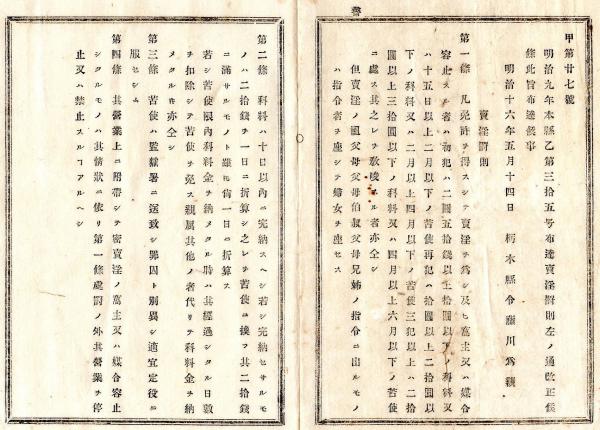 警
甲第廿七號
明治九年本縣乙第三十五号布達賣淫罰則左ノ通改正候
條此旨布達候事
明治十六年五月十四日　栃木縣令藤川爲親
賣淫罰則
第一條　凡免許ヲ得スシテ賣淫ヲ爲シ及ヒ窩主又ハ媒合
容止スル者ハ初犯ハ二圓五拾錢以上拾圓以下ノ科料又
ハ十五日以上二月以下ノ苦使再犯ハ拾圓以上二拾圓以
下ノ科料又ハ二月以上四月以下ノ苦使三犯以上ハ二拾
圓以上三拾圓以下ノ科料又ハ四月以上六月以下ノ苦使
ニ處ス其之レヲ教唆スル者亦仝シ
但賣淫ノ祖父母父母伯叔父母兄姉ノ指令ニ出ルモノ
ハ指令者ヲ座シテ婦女ヲ座セス
第二條　科料ハ十日以內ニ完納スヘシ若シ完納セサルモ
ノハ二拾錢ヲ一日ニ折算シ之レヲ苦使ニ換フ其二拾錢
ニ滿サルモノト雖モ尙一日ニ折算ス
若シ苦使限內科料金ヲ納メタル時ハ其經過シタル日數
ヲ扣除シテ苦使ヲ免ス親屬其他ノ者代リテ科料金ヲ納
メタルモ亦仝シ
第三條　苦使ハ監獄署ニ送致シ罪囚ト別異シ適宜定役ニ
服セシム
第四條　其營業上ニ附帶シテ密賣淫ノ窩主又ハ媒合容止
シタルモノハ其情狀ニ依リ第一條處罰ノ外其營業ヲ停
止又ハ禁止スルコアルヘシ